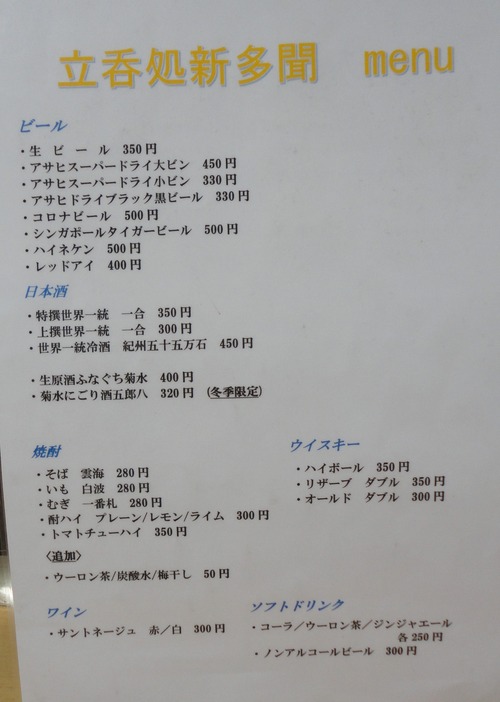 立呑処新多聞　menu
ビール
・生　ビ　ー　ル　350円
・アサヒスーパードライ大ビン　450円
・アサヒスーパードライ小ビン　330円
・アサヒドライブラック黒ビール　330円
・コロナビール　500円
・シンガポールタイガービール　500円
・ハイネケン　500円
・レッドアイ　400円
日本酒
・特撰世界一統　一合　350円
・上撰世界一統　一合　300円
・世界一統冷酒　紀州五十五万石　450円
・生原酒ふなぐち菊水　400円
・菊水にごり酒五郎八　320円　(冬季限定)
焼酎
・そば　雲海　280円
・いも　白波　280円
・むぎ　一番札　280円
・酎ハイ　プレーン/レモン/ライム　300円
・トマトチューハイ　350円
〈追加〉
・ウーロン茶/炭酸水/梅干し　50円
ウイスキー
・ハイボール　350円
・リザーブ　ダブル　350円
・オールド　ダブル　300円
ワイン
・サントネージュ　赤／白　300円
ソフトドリンク
・コーラ／ウーロン茶／ジンジャエール
各250円
・ノンアルコールビール　300円